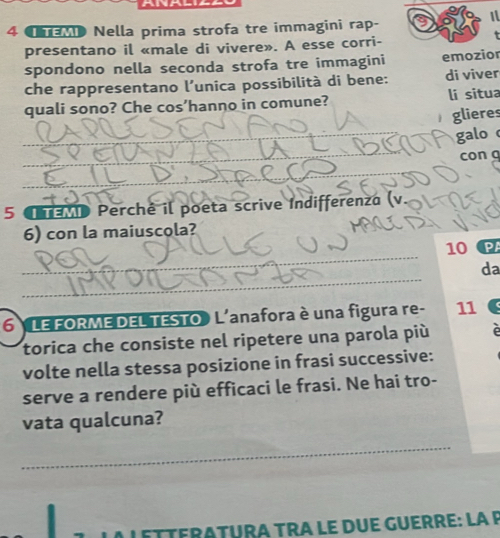 ANALIZZO
4 I TEMI Nella prima strofa tre immagini rap-
presentano il «male di vivere». A esse corri-
spondono nella seconda strofa tre immagini
che rappresentano l'unica possibilità di bene:
quali sono? Che cos'hanno in comune?
RAPPRESENTANO LA
SPERANZA LA LIBERTA
E IL DISTACCO
5 I TEMI Perché il poeta scrive Indifferenza (v.
6) con la maiuscola?
PER DARLE UN
IMPORTANZA
6 LE FORME DEL TESTO L'anafora è una figura re-
torica che consiste nel ripetere una parola più
volte nella stessa posizione in frasi successive:
serve a rendere più efficaci le frasi. Ne hai tro-
vata qualcuna?
9 Il
emozion
di viver
li situa
glieres
galo
con q
10 PA
da
11
è
LA LETTERATURA TRA LE DUE GUERRE: LA P